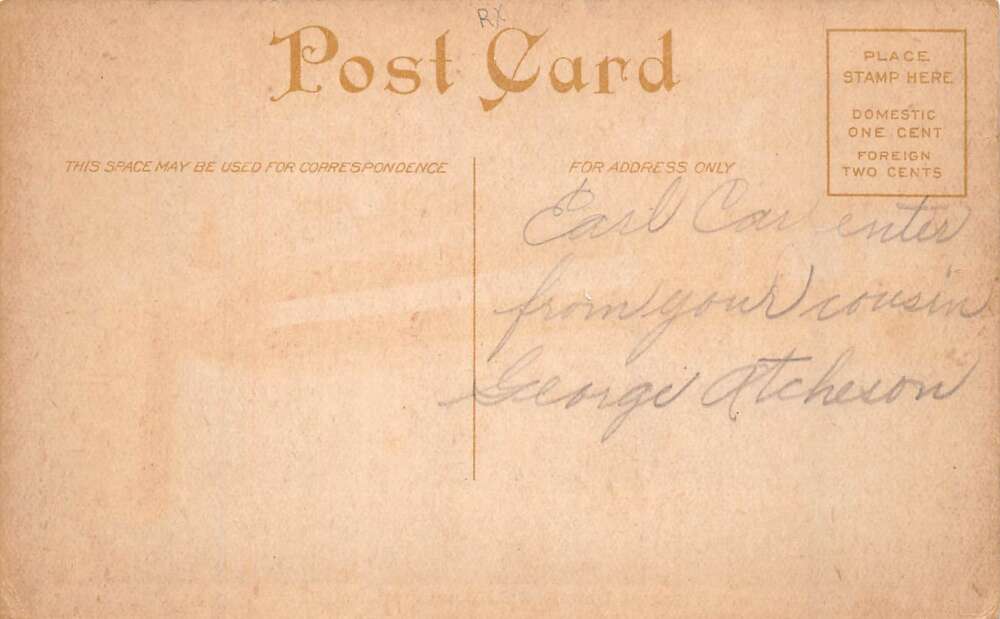 RX
Post Card
PLACE
STAMP HERE
DOMESTIC
ONE CENT
FOREIGN
TWO CENTS
THIS SPACE MAY BE USED FOR CORRESPONDENCE
FOR ADDRESS ONLY
Earl Carpenter
from your cousin
George Atcheson